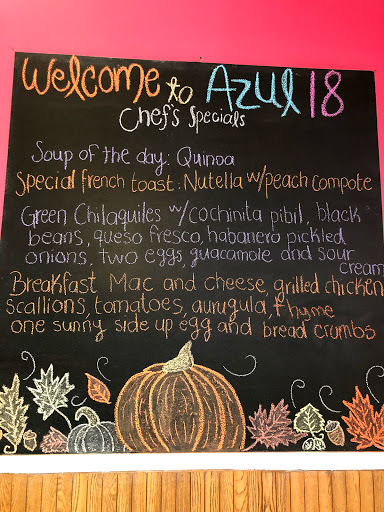 Welcome to Azul 18
Chef's Specials
Soup of the day: Quinoa
Special french toast: Nutella w/peach compote
Green Chilaquiles w/cochinita pibil, black
beans, queso fresco, habanero pickled
onions, two eggs, guacamole and sour
cream
Breakfast Mac and cheese, grilled chicken
scallions, tomatoes, aurugula, thyme
one sunny side up egg and bread crumbs